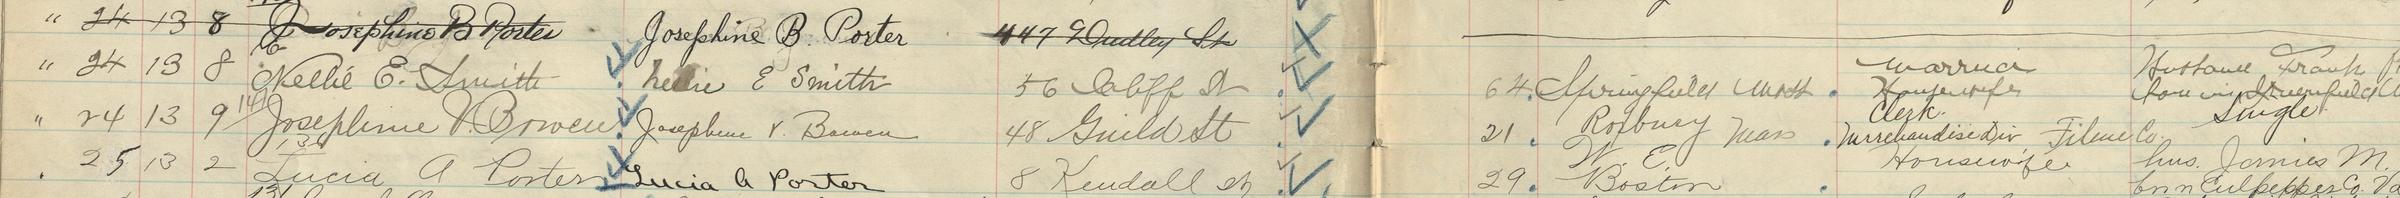 " 24 13 8 Josephine B Porter Josephine B. Porter 447 Dudley St
" 24 13 8 Nellie E. Smith Nellie E Smith 56 Cliff St 64. Springfield Mass. Married Housewife Husband Frank
" 24 13 9 141 Josephine V. Bowen Josephine V. Bowen 48 Guild St 21. Roxbury Mass. Clerk. Merchandise Div. Filene Co. Single
. 25 13 2 136 Lucia A Porter Lucia A Porter 8 Kendall St 29. W. E. Boston. Housewife hus. James M.
born Culpepper Co. Va